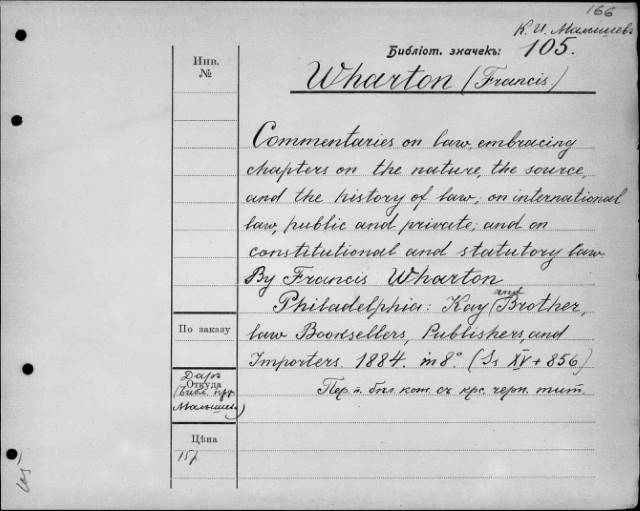 166
К. И. Малышевъ
Библіот. значекъ: 105.
Инв.
№
Wharton (Francis)
Commentaries on law, embracing
chapters on the nature, the source,
and the history of law; on international
law, public and private; and on
constitutional and statutory law
By Francis Wharton
Philadelphia: Kay and Brother,
law Booksellers, Publishers, and
Importers. 1884. in 8°. (Ss XV + 856)
Пер. п. бѣл. кож. съ крс. черн. тит.
По заказу
Даръ
Откуда
(библ. пр.
Малышева)
Цѣна
15р